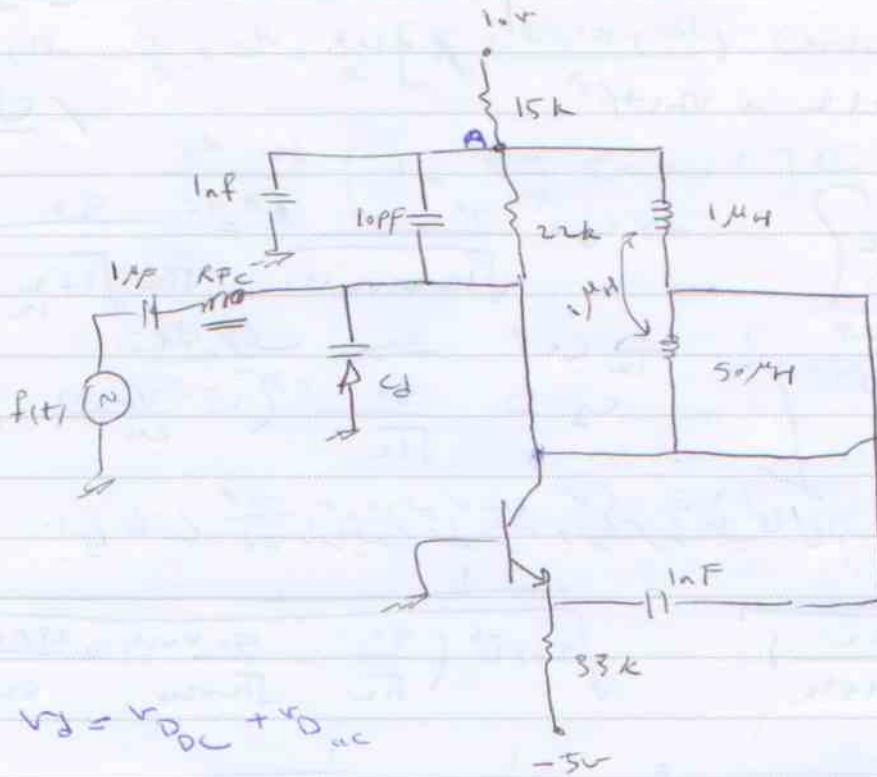 10v
15k
A
1nf
10PF
22k
1µH
1µF RFC
1µH
50µH
f(t)
Cd
1nF
33k
vd = vD DC + vD ac
-5v